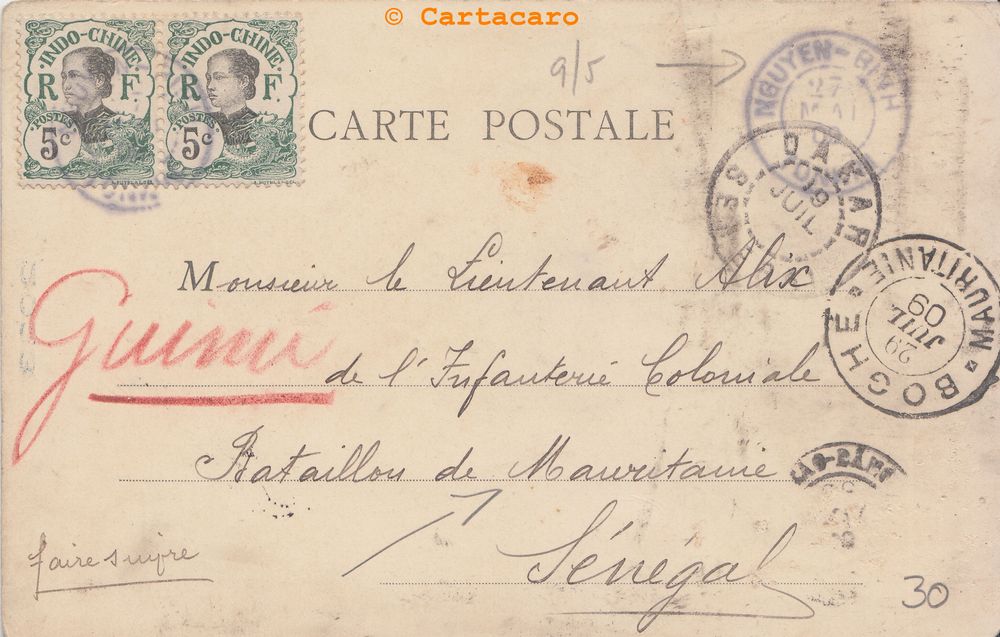 © Cartacaro
INDO-CHINE INDO-CHINE
R F R F
POSTES POSTES
5c 5c
9/5
NGUYEN-BINH
27
MAI
CARTE POSTALE
DAKAR
19
JUIL
Monsieur le Lieutenant Alix
Guinée
de l'Infanterie Coloniale
BOGHE
MAURITANIE
29
JUIL
09
Bataillon de Mauritanie
CAO-BANG
Sénégal
faire suivre
30